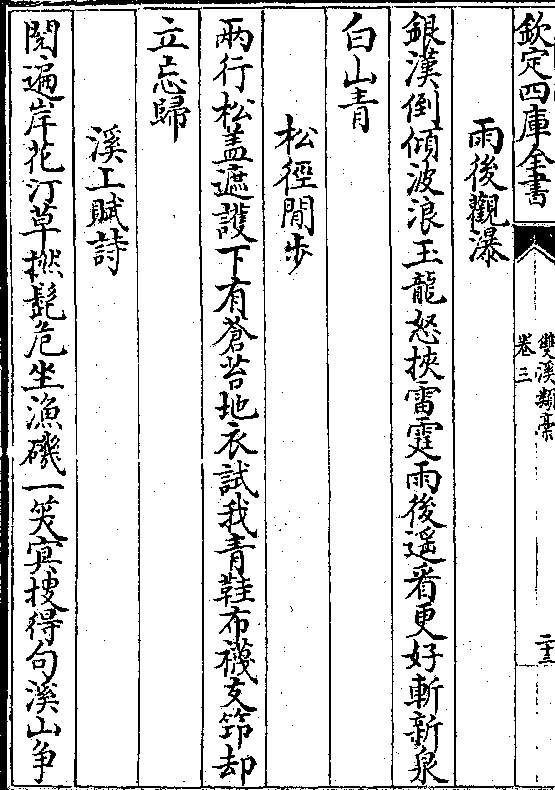 欽定四庫全書
雙溪類稾
卷三
二十三
雨後觀瀑
銀漢倒傾波浪玉龍怒挾雷霆雨後遥看更好斬新泉
白山青
松徑閒步
兩行松蓋遮護下有蒼苔地衣試我青鞋布襪支笻却
立忘歸
溪上賦詩
閱遍岸花汀草撚髭危坐漁磯一笑冥搜得句溪山争